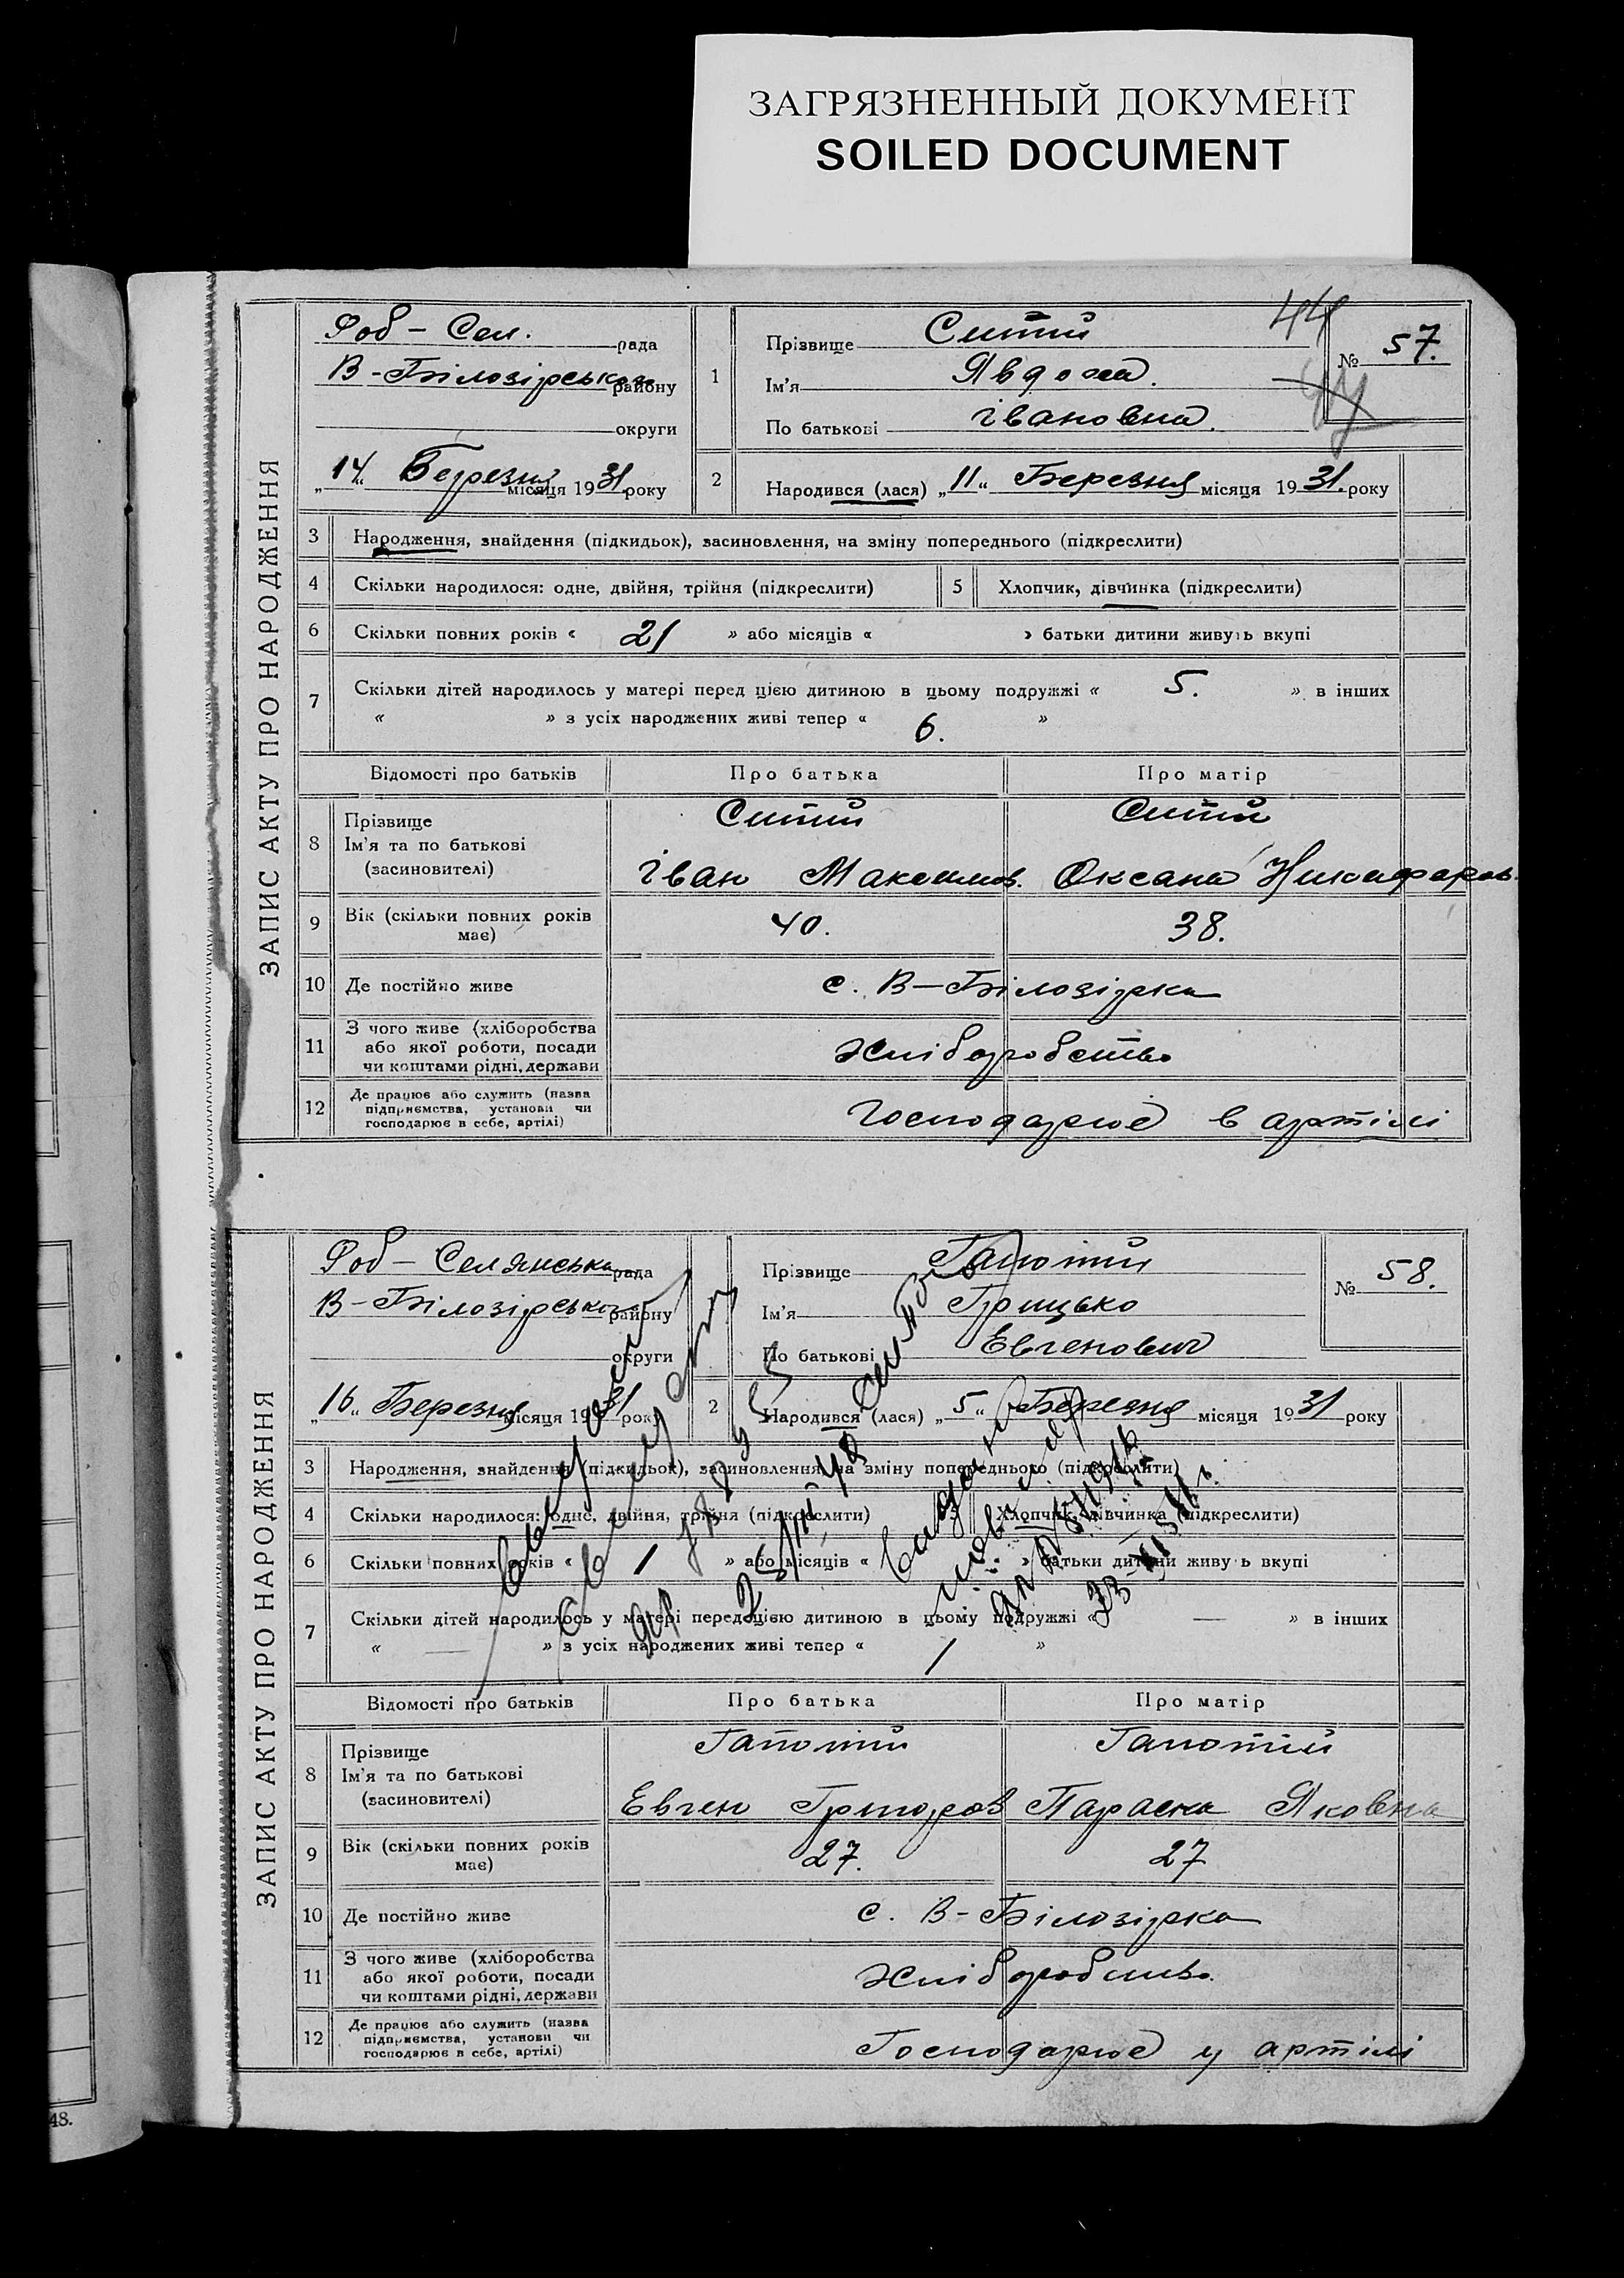 ЗАГРЯЗНЕННЫЙ ДОКУМЕНТ
SOILED DOCUMENT
44
ЗАПИС АКТУ ПРО НАРОДЖЕННЯ
Роб - Сел. рада
В-Білозірського району
округи
"14" Березня місяця 1931 року
1
Прізвище Ситий
Ім'я Явдоха.
По батькові Івановна.
№ 57.
2 Народився (лася) „11" Березня місяця 1931. року
3 Народження, знайдення (підкидьок), засиновлення, на зміну попереднього (підкреслити)
4 Скільки народилося: одне, двійня, трійня (підкреслити) 5 Хлопчик, дівчинка (підкреслити)
6 Скільки повних років « 21 » або місяців « » батьки дитини живуть вкупі
7 Скільки дітей народилось у матері перед цією дитиною в цьому подружжі « 5. » в інших
« » з усіх народжених живі тепер « 6. »
Відомості про батьків Про батька Про матір
8 Прізвище Ситий Ситий
Ім'я та по батькові
(засиновителі) Іван Максимов. Оксана Никифоров.
9 Вік (скільки повних років має) 40. 38.
10 Де постійно живе с. В-Білозірка
11 З чого живе (хліборобства
або якої роботи, посади Хліборобство
чи коштами рідні, держави
12 Де працює або служить (назва
підприємства, установи чи Господарює в артілі
господарює в себе, артілі)
ЗАПИС АКТУ ПРО НАРОДЖЕННЯ
Роб - Селянська рада
В-Білозірського району
округи
„16" Березня місяця 1931 року
Прізвище Гапотій
Ім'я Грицько
По батькові Евгенович
№ 58.
2 Народився (лася) „5" Березня місяця 1931 року
3 Народження, знайдення (підкидьок), засиновлення, на зміну попереднього (підкреслити)
4 Скільки народилося: одне, двійня, трійня (підкреслити) 5 Хлопчик, дівчинка (підкреслити)
6 Скільки повних років « 1 » або місяців « » батьки дитини живуть вкупі
7 Скільки дітей народилось у матері перед цією дитиною в цьому подружжі « — » в інших
« — » з усіх народжених живі тепер « 1 »
Відомості про батьків Про батька Про матір
8 Прізвище Гапотій Гапотій
Ім'я та по батькові
(засиновителі) Евген Григоров Параска Яковена
9 Вік (скільки повних років має) 27. 27
10 Де постійно живе с. В-Білозірка
11 З чого живе (хліборобства
або якої роботи, посади Хліборобство.
чи коштами рідні, держави
12 Де працює або служить (назва
підприємства, установи чи Господарює у артілі
господарює в себе, артілі)
48.